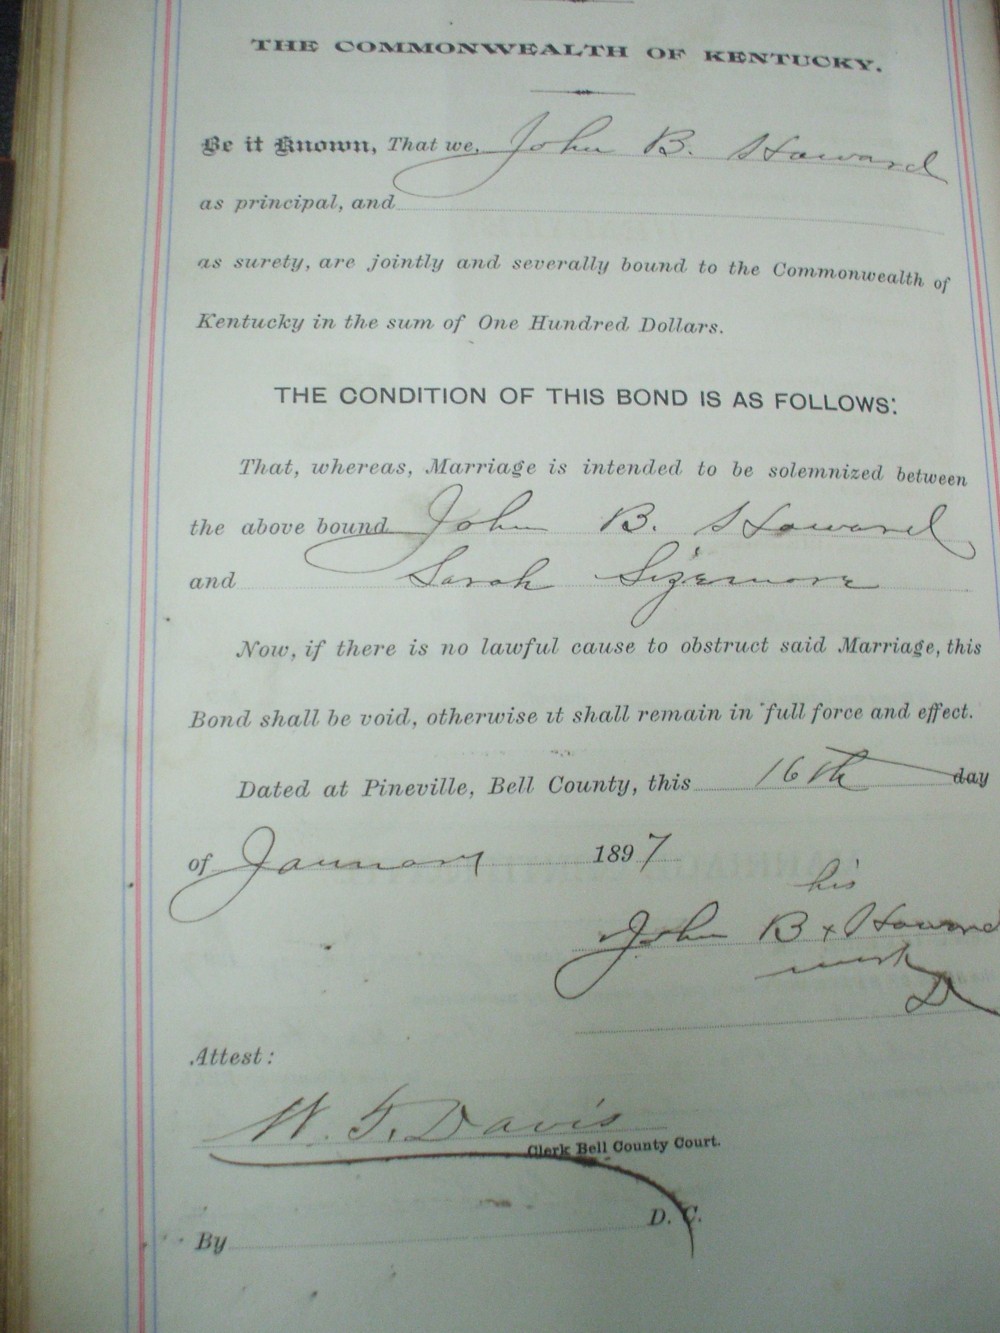 THE COMMONWEALTH OF KENTUCKY.
Be it Known, That we, John B. Howard
as principal, and
as surety, are jointly and severally bound to the Commonwealth of
Kentucky in the sum of One Hundred Dollars.
THE CONDITION OF THIS BOND IS AS FOLLOWS:
That, whereas, Marriage is intended to be solemnized between
the above bound John B. Howard
and Sarah Sizemore
Now, if there is no lawful cause to obstruct said Marriage, this
Bond shall be void, otherwise it shall remain in full force and effect.
Dated at Pineville, Bell County, this 16th day
of January 1897
his
John B x Howard
mark
Attest:
W. F. Davis
Clerk Bell County Court.
By D. C.